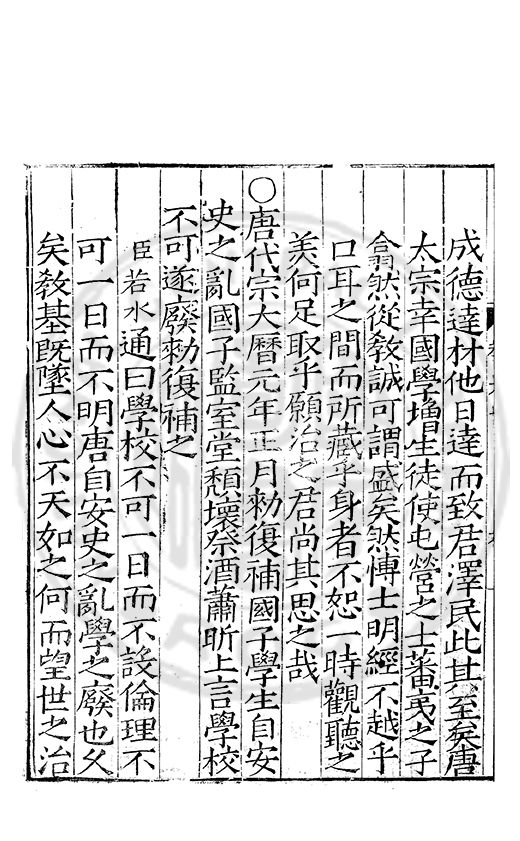 成德達材他日達而致君澤民此其至矣唐
太宗幸國學增生徒使屯營之士蕃夷之子
翕然從教誠可謂盛矣然博士明經不越乎
口耳之間而所藏乎身者不恕一時觀聽之
美何足取乎願治之君尚其思之哉
○唐代宗大曆元年正月勑復補國子學生自安
史之亂國子監室堂頹壞祭酒蕭昕上言學校
不可遂廢勑復補之
臣若水通曰學校不可一日而不設倫理不
可一日而不明唐自安史之亂學之廢也久
矣教基既墜人心不天如之何而望世之治